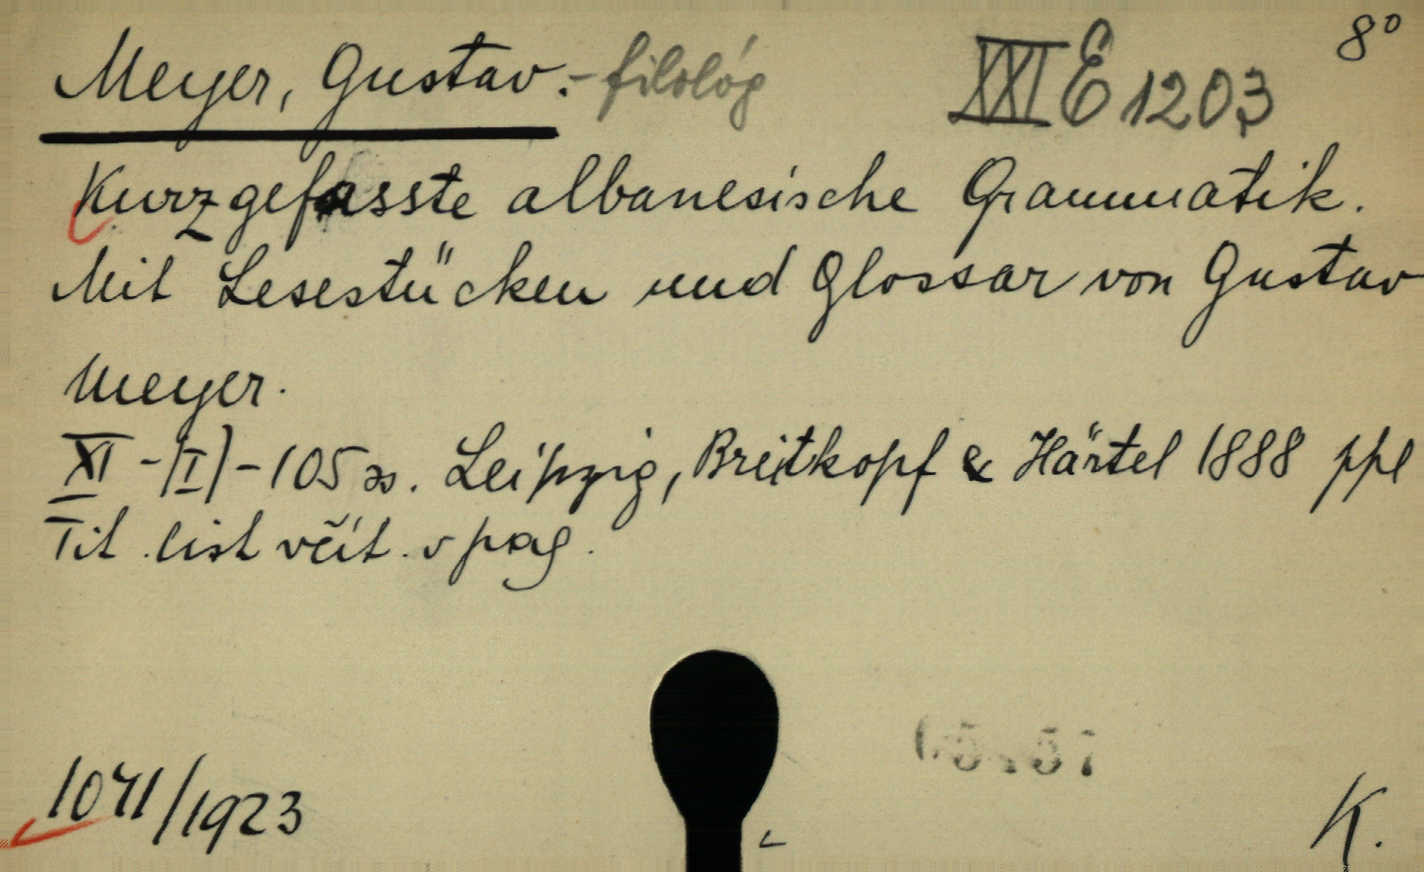 8°
Meyer, Gustav :- filológ XXI E 1203
Kurzgefasste albanesische Grammatik.
Mit Lesestücken und Glossar von Gustav
Meyer.
XI-[I]-105 ss. Leipzig, Breitkopf & Härtel 1888 ppl
Tit. list včít. v pag.
1041/1923
K.